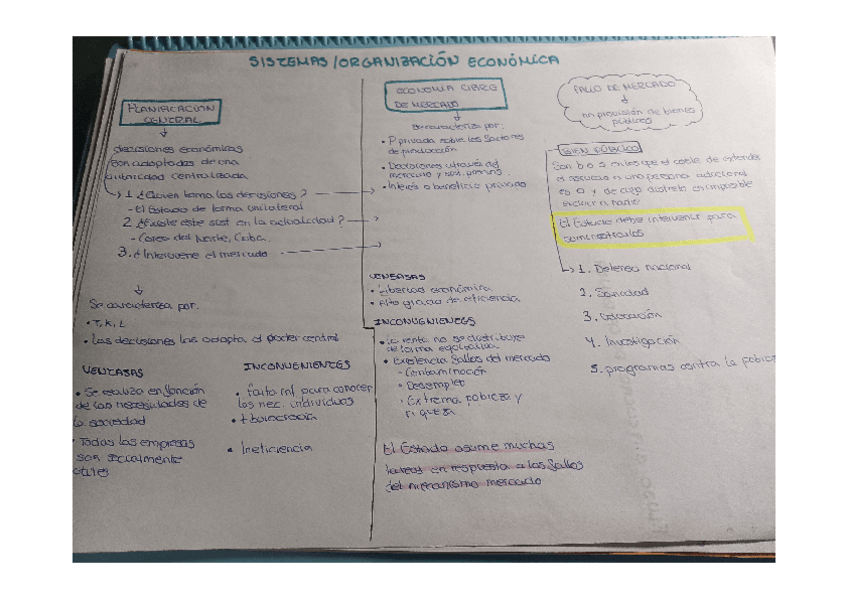 SISTEMAS/ORGANIZACIÓN ECONÓMICA
PLANIFICACIÓN
CENTRAL
decisiones económicas
son adoptadas de una
autoridad centralizada
1. ¿Quien toma las decisiones?
- El Estado de forma unilateral
2. ¿Existe este sist en la actualidad?
- Corea del Norte, Cuba.
3. ¿Interviene el mercado
Se caracteriza por:
• T, K, L
• Las decisiones las adopta el poder central
VENTAJAS
• Se realiza en función
de las necesidades de
la sociedad
• Todas las empresas
son socialmente
útiles
INCONVENIENTES
• falta inf para conocer
las nec. individuos
• + burocracia
• Ineficiencia
ECONOMÍA LIBRE
DE MERCADO
Se caracteriza por:
• P privada sobre los factores
de producción
• Decisiones a través del
mercado y sist. precios
• Interés o beneficio privado
VENTAJAS
• Libertad económica
• Alto grado de eficiencia
INCONVENIENTES
• La renta no se distribuye
de forma equitativa
• Existencia fallos del mercado
- Contaminación
- Desempleo
- Extrema pobreza y
riqueza
El Estado asume muchas
tareas en respuesta a los fallos
del mecanismo mercado
FALLO DE MERCADO
no provisión de bienes
públicos
BIEN PÚBLICO
Son b o s en los que el coste de extender
el servicio a una persona adicional
es 0 y de cuyo disfrute es imposible
excluir a nadie
El Estado debe intervenir para
suministrarlos
1. Defensa nacional
2. Sanidad
3. Educación
4. Investigación
5. programas contra la